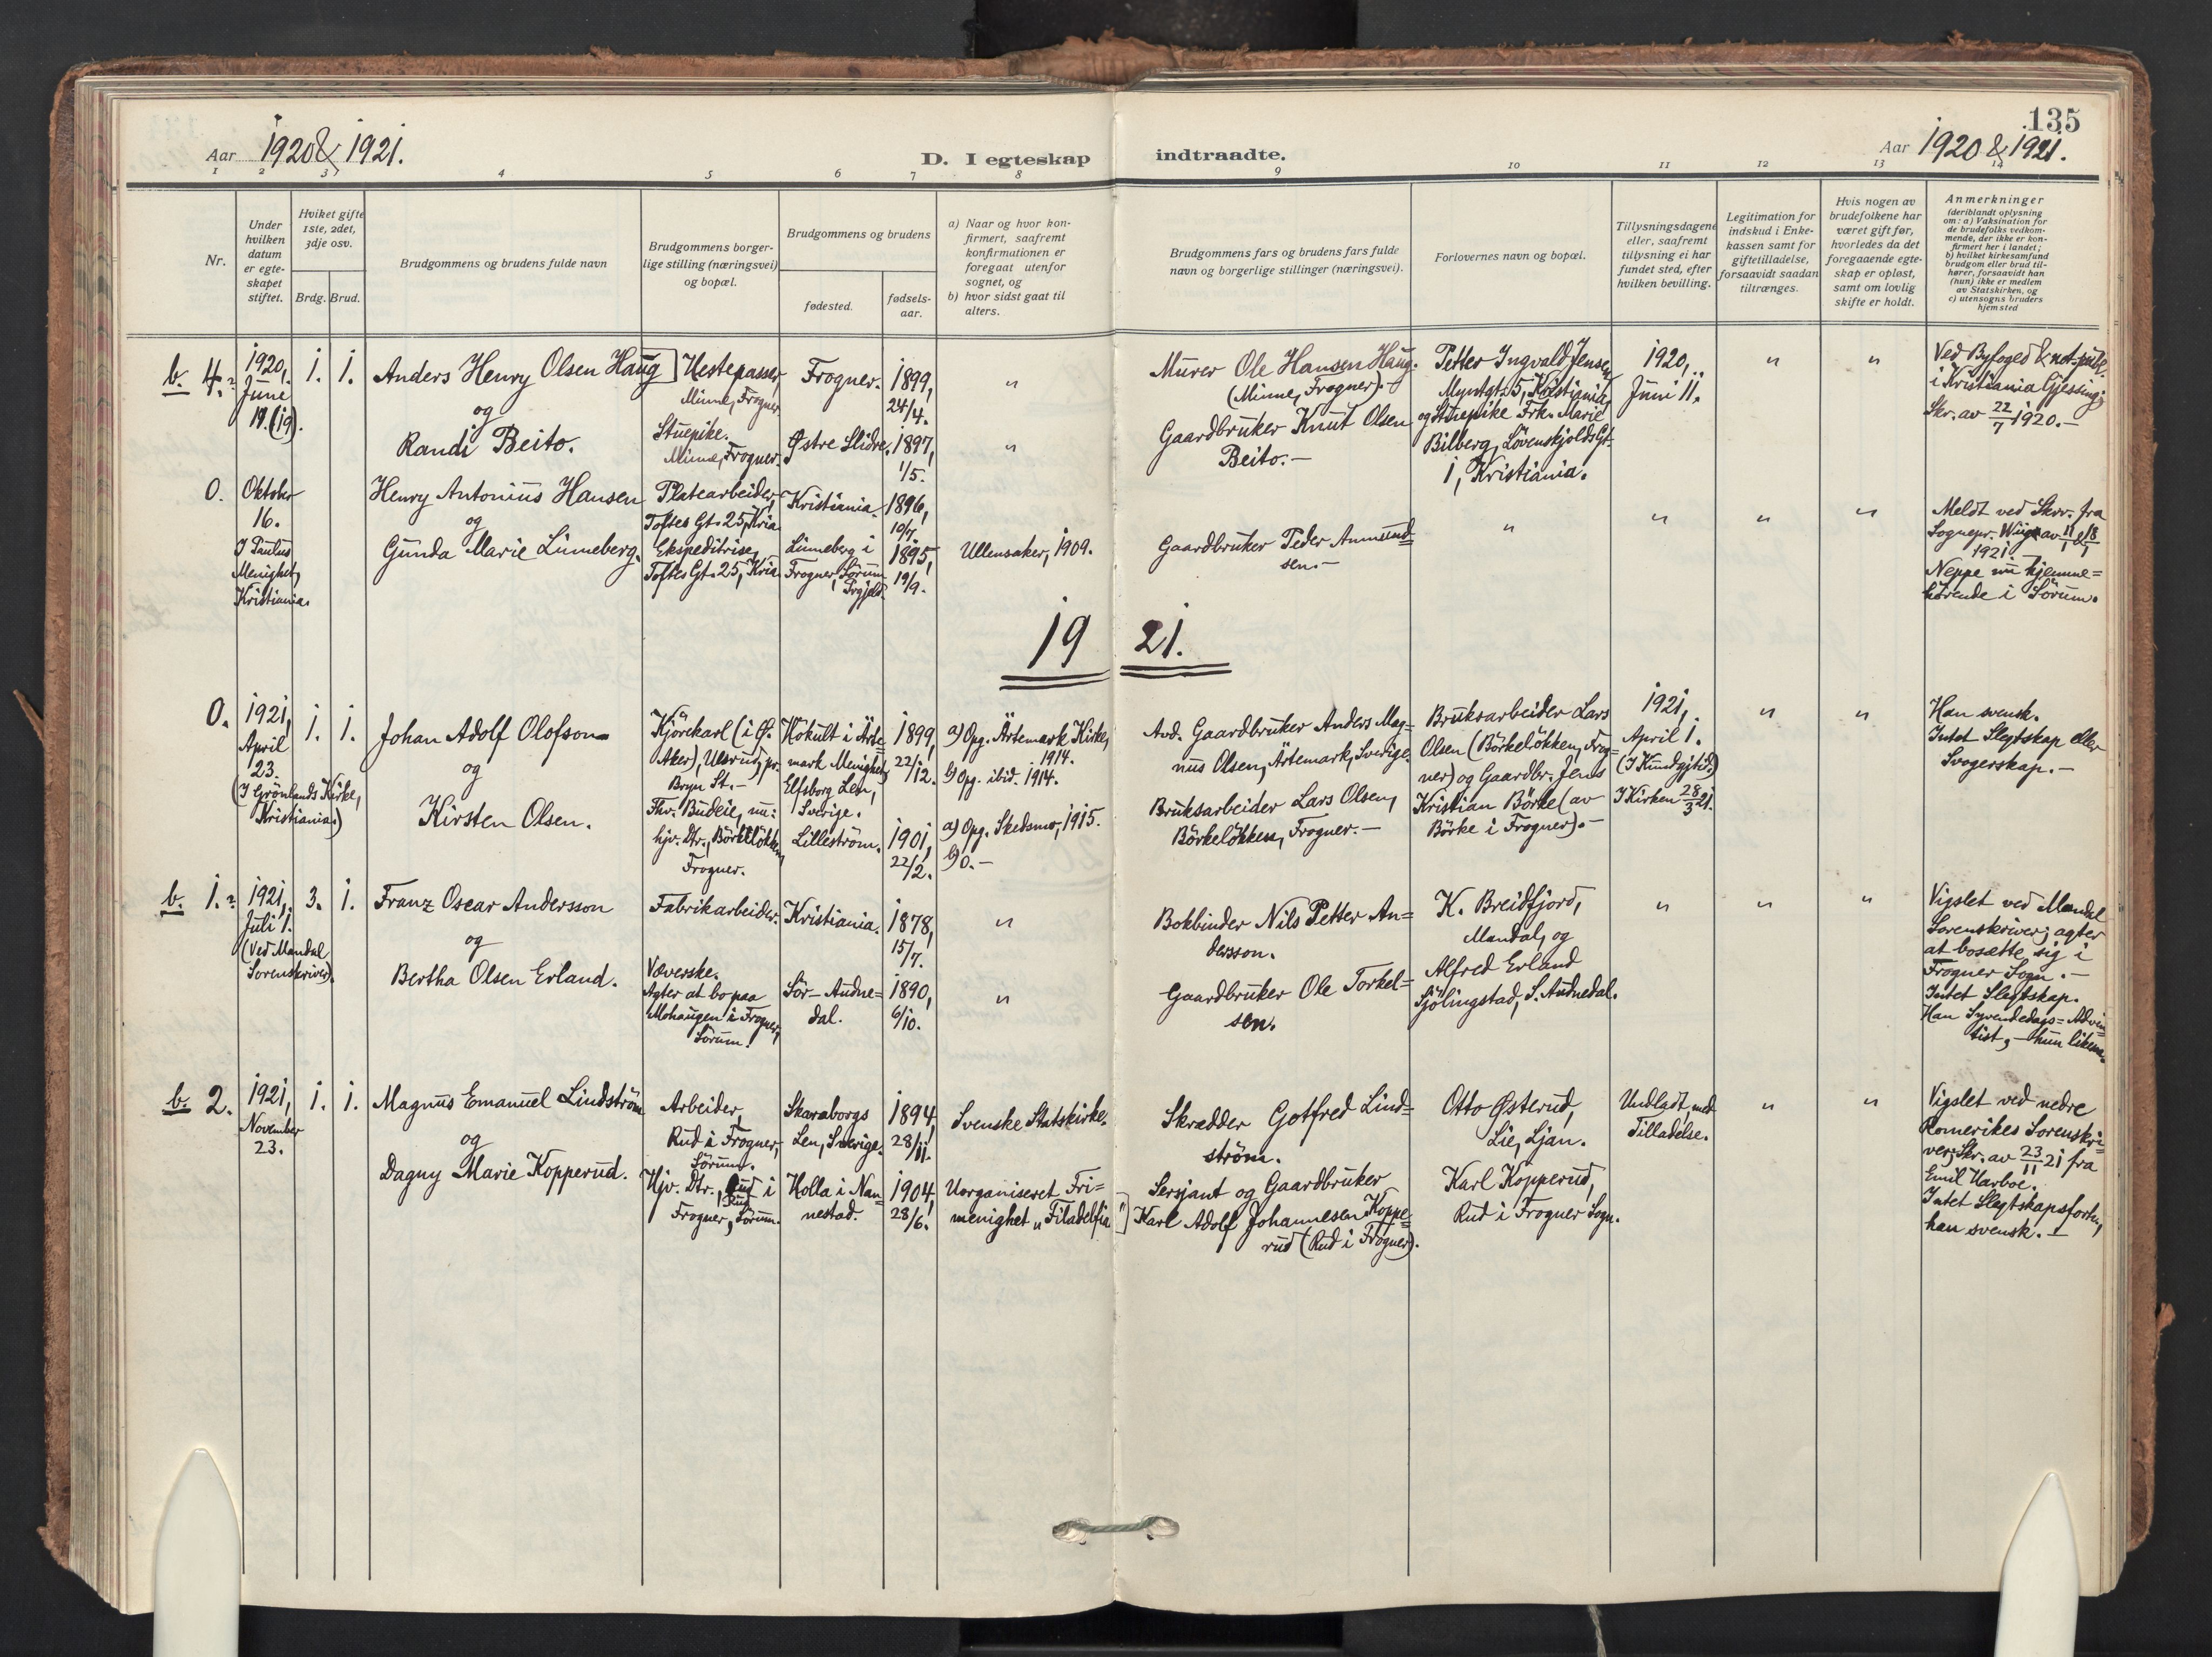 135
Aar 1920 & 1921.
D. I egteskap indtraadte.
Aar 1920 & 1921.
1 2 3 4 5 6 7 8 9 10 11 12 13 14
Nr.
Under
hvilken
datum
er egte-
skapet
stiftet.
Hvilket gifte
1ste, 2det,
3dje osv.
Brdg. Brud.
Brudgommens og brudens fulde navn
Brudgommens borger-
lige stilling (næringsvei)
og bopæl.
Brudgommens og brudens
fødested.
fødsels-
aar.
a) Naar og hvor kon-
firmert, saafremt
konfirmationen er
foregaat utenfor
sognet, og
b) hvor sidst gaat til
alters.
Brudgommens fars og brudens fars fulde
navn og borgerlige stillinger (næringsvei).
Forlovernes navn og bopæl.
Tillysningsdagene
eller, saafremt
tillysning ei har
fundet sted, efter
hvilken bevilling.
Legitimation for
indskud i Enke-
kassen samt for
giftetilladelse,
forsaavidt saadan
tiltrænges.
Hvis nogen av
brudefolkene har
været gift før,
hvorledes da det
foregaaende egte-
skap er opløst,
samt om lovlig
skifte er holdt.
Anmerkninger
(deriblandt oplysning
om: a) Vaksination for
de brudefolks vedkom-
mende, der ikke er kon-
firmert her i landet;
b) hvilket kirkesamfund
brudgom eller brud til-
hører, forsaavidt han
(hun) ikke er medlem
av Statskirken, og
c) utensogns bruders
hjemsted
b. 4.
1920,
June
19. (19).
1. 1.
Anders Henry Olsen Haug]
og
Randi Beito.
Hestepasser,
Minne, Frogner
Stuepike.
Minne, Frogner.
Frogner.
Østre Slidre.
1899,
24/4.
1897,
1/5.
"
"
Murer Ole Hansen Haug.
(Minne, Frogner).
Gaardbruker Knut Olsen
Beito.-
Petter Ingvald Jensen
Myntgt. 5, Kristiania,
og Stuepike Frk. Marie
Bilberg, Løvenskjolds Gt.
1, Kristiania.
1920,
Juni 11.
" "
Ved Byfoged & not. publ.
i Kristiania Gjessing;
Skr. av 22/7 1920.-
0.
Oktober
16.
I Paulus
Menighet,
Kristiania.
Henry Antonius Hansen
og
Gunda Marie Linneberg.
Platearbeider,
Toftes Gt. 25, Kria.
Ekspeditrise,
Toftes Gt. 25, Kria.
Kristiania.
Linneberg i
Frogner, Sörum
Prgjeld.
1896,
10/7.
1895,
19/9.
Ullensaker, 1909.
Gaardbruker Peder Anmund-
sen.-
" " " "
Meldt ved Skr. fra
Sognepr. Wiig av 11/1 & 18/1
1921.-
Neppe nu hjemme=
hørende i Sörum.
1921.
0.
1921,
April
23.
(I Grönlands Kirke,
Kristiania)
1. 1.
Johan Adolf Olofson
og
Kirsten Olsen.
Kjörekarl (i Ø.
Aker), Ulsrud, pr.
Bryn St.-
Thv. Budeie, nu:
hjv. Dtr., Börkelökken,
Frogner.
Hökult i Ärte=
mark Menighet,
Elfsborg Len,
Sverige.
Lilleström.
1899,
22/12.
1901,
22/2.
a) Opg. Ärtemark Kirke,
1914.
b) Opg. ibid. 1914.
a) Opg. Skedsmo, 1915.
b) 0.-
Avd. Gaardbruker Anders Mag=
nus Olsen, Ärtemark, Sverige.
Bruksarbeider Lars Olsen,
Börkelökken, Frogner.-
Bruksarbeider Lars
Olsen (Börkelökken, Frog=
ner) og Gaardbr. Jens
Kristian Börke (av
Börke i Frogner).-
1921,
April 1.
(I Kundgjtid.)
I Kirken 28/3 21.
" "
Han svensk.
Intet Slegtskap eller
Svogerskap.-
b. 1.
1921,
Juli 1.
(Ved Mandal
Sorenskriver).
3. 1.
Franz Oscar Andersson
og
Bertha Olsen Erland.
Fabrikarbeider.
Væverske.
Agter at bo paa
Mohaugen i Frogner,
Sörum.
Kristiania.
Sör-Audne=
dal.
1878,
15/7.
1890,
6/10.
"
"
Bokbinder Nils Petter An=
dersson.
Gaardbruker Ole Torkel=
sen.
K. Breidfjord,
Mandal, og
Alfred Erland
Sjölingstad, S. Audnedal.
" " "
Vigslet ved Mandal
Sorenskriver; agter
at bosette sig i
Frogner Sogn.-
Intet Slegtskap.
Han Syvendedags=Adven=
tist,-hun likesaa.
b. 2.
1921,
November
23.
1. 1.
Magnus Emanuel Lindström
og
Dagny Marie Kopperud.
Arbeider,
Rud i Frogner,
Sörum.
Hjv. Dtr., Rud i
Rud
Frogner, Sörum.
Skaraborgs
Len, Sverige.
Holla i Nan=
nestad.
1894,
28/11.
1904,
28/6.
Svenske Statskirke.
Uorganiseret Fri=
menighet "Filadelfia"]
Skrædder Gotfred Lind=
ström.
Sersjant og Gaardbruker
Karl Adolf Johannesen Koppe=
rud (Rud i Frogner).
Otto Østerud,
Lie, Ljan.
Karl Kopperud,
Rud i Frogner Sogn.
Undladt med
Tilladelse.
" "
Vigslet ved nedre
Romerikes Sorenskri=
ver; Skr. av 23/11 21 fra
Emil Harboe.
Intet Slegtskapsforh.,
han svensk.-